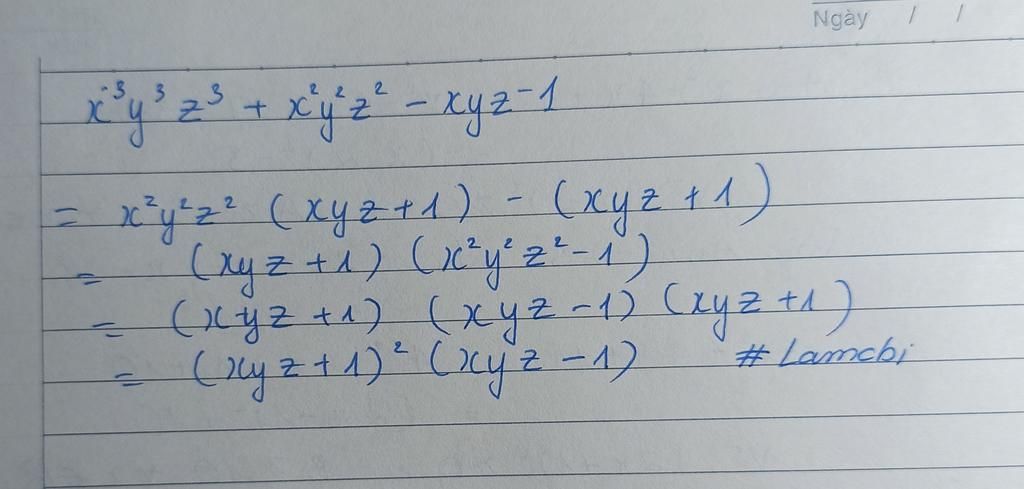 Ngày / /
x³y³z³ + x²y²z² - xyz - 1
= x²y²z² (xyz + 1) - (xyz + 1)
= (xyz + 1) (x²y²z² - 1)
= (xyz + 1) (xyz - 1) (xyz + 1)
= (xyz + 1)² (xyz - 1) # Lamcbi